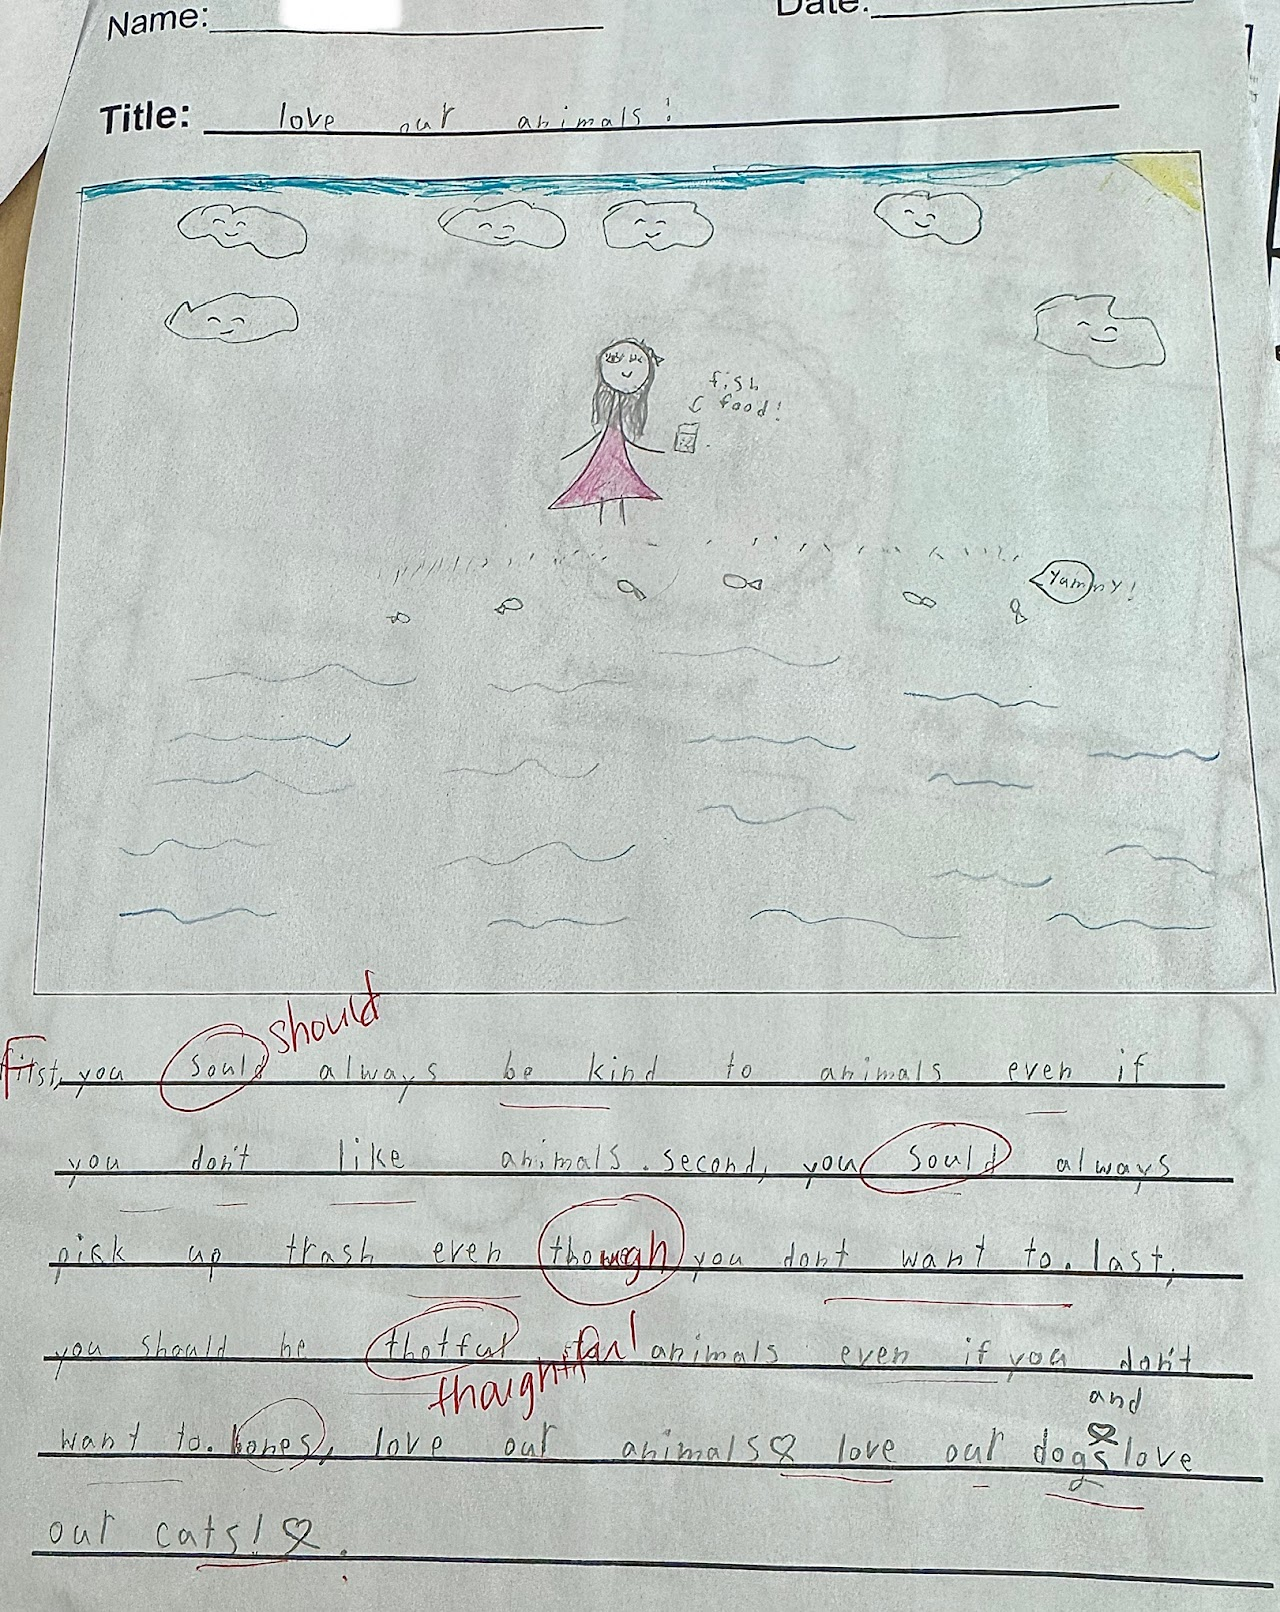 Name:
Date:
Title: love our animals!
fish
food!
Yammy!
should
first, you sould always be kind to animals even if
you don't like animals. second, you sould always
pick up trash even though you dont want to. last,
you should be thotful animals even if you don't
thoughtful
and
want to. bones, love our animals♡ love our dogs♡ love
our cats!♡.